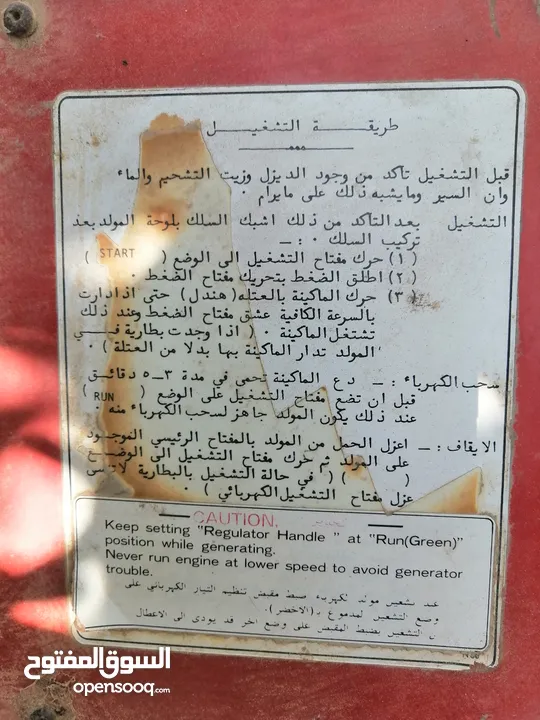 طريقة التشغيل
قبل التشغيل تأكد من وجود الديزل وزيت التشحيم والماء
وان السير ومايشبه ذلك على مايرام ٠
التشغيل بعد التأكد من ذلك اشبك السلك بلوحة المولد بعد
تركيب السلك ٠ : ــ
(١) حرك مفتاح التشغيل الى الوضع ( START )
(٢) اطلق الضغط بتحريك مفتاح الضغط ٠
(٣) حرك الماكينة بالعتله (هندل) حتى اذا دارت
بالسرعة الكافية عشق مفتاح الضغط وعند ذلك
تشتغل الماكينة ٠ ( اذا وجدت بطارية في
المولد تدار الماكينة بها بدلا من العتلة ) ٠
سحب الكهرباء : ــ دع الماكينة تحمى في مدة ٣ــ٥ دقائق
قبل ان تضع مفتاح التشغيل على الوضع ( RUN )
عند ذلك يكون المولد جاهز لسحب الكهرباء منه ٠
الايقاف : ــ اعزل الحمل من المولد بالمفتاح الرئيسي الموجود
على المولد ثم حرك مفتاح التشغيل الى الوضع
( ) ( في حالة التشغيل بالبطارية لاتنسى
عزل مفتاح التشغيل الكهربائي ) ٠
CAUTION. تحذير
Keep setting "Regulator Handle " at "Run(Green)"
position while generating.
Never run engine at lower speed to avoid generator
trouble.
عند تشغيل مولد الكهرباء ضبط مقبض تنظيم التيار الكهربائي على
وضع التشغيل لمدموغ بـ(الاخضر).
التشغيل بضبط المقبض على وضع اخر قد يودى الى الاعطال
السوق المفتوح
opensooq.com